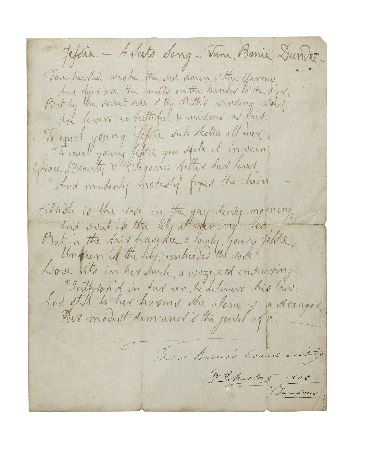 Jessie — A Scots Song — Tune, Bonie Dundee —
True hearted was he, the sad swain o' the Yarrow,
And fair are the maids on the banks o' the Ayr;
But by the sweet side o' the Nith's winding river,
Are lovers as faithful, & maidens as fair:
To equal young Jessie seek Scotia all over,
To equal young Jessie you seek it in vain;
Grace, Beauty & Elegance fetter her lover,
And maidenly modesty fixes the chain —
Fresh is the rose in the gay, dewy morning,
And sweet is the lily at evening close;
But in the fair presence o' lovely, young Jessie,
Unseen is the lily, unheeded the rose.
Love sits in her smile, a wizard ensnaring,
Enthron'd in her een he delivers his law;
And still to her charms she alone is a stranger,
Her modest demeanor's the jewel of a'.